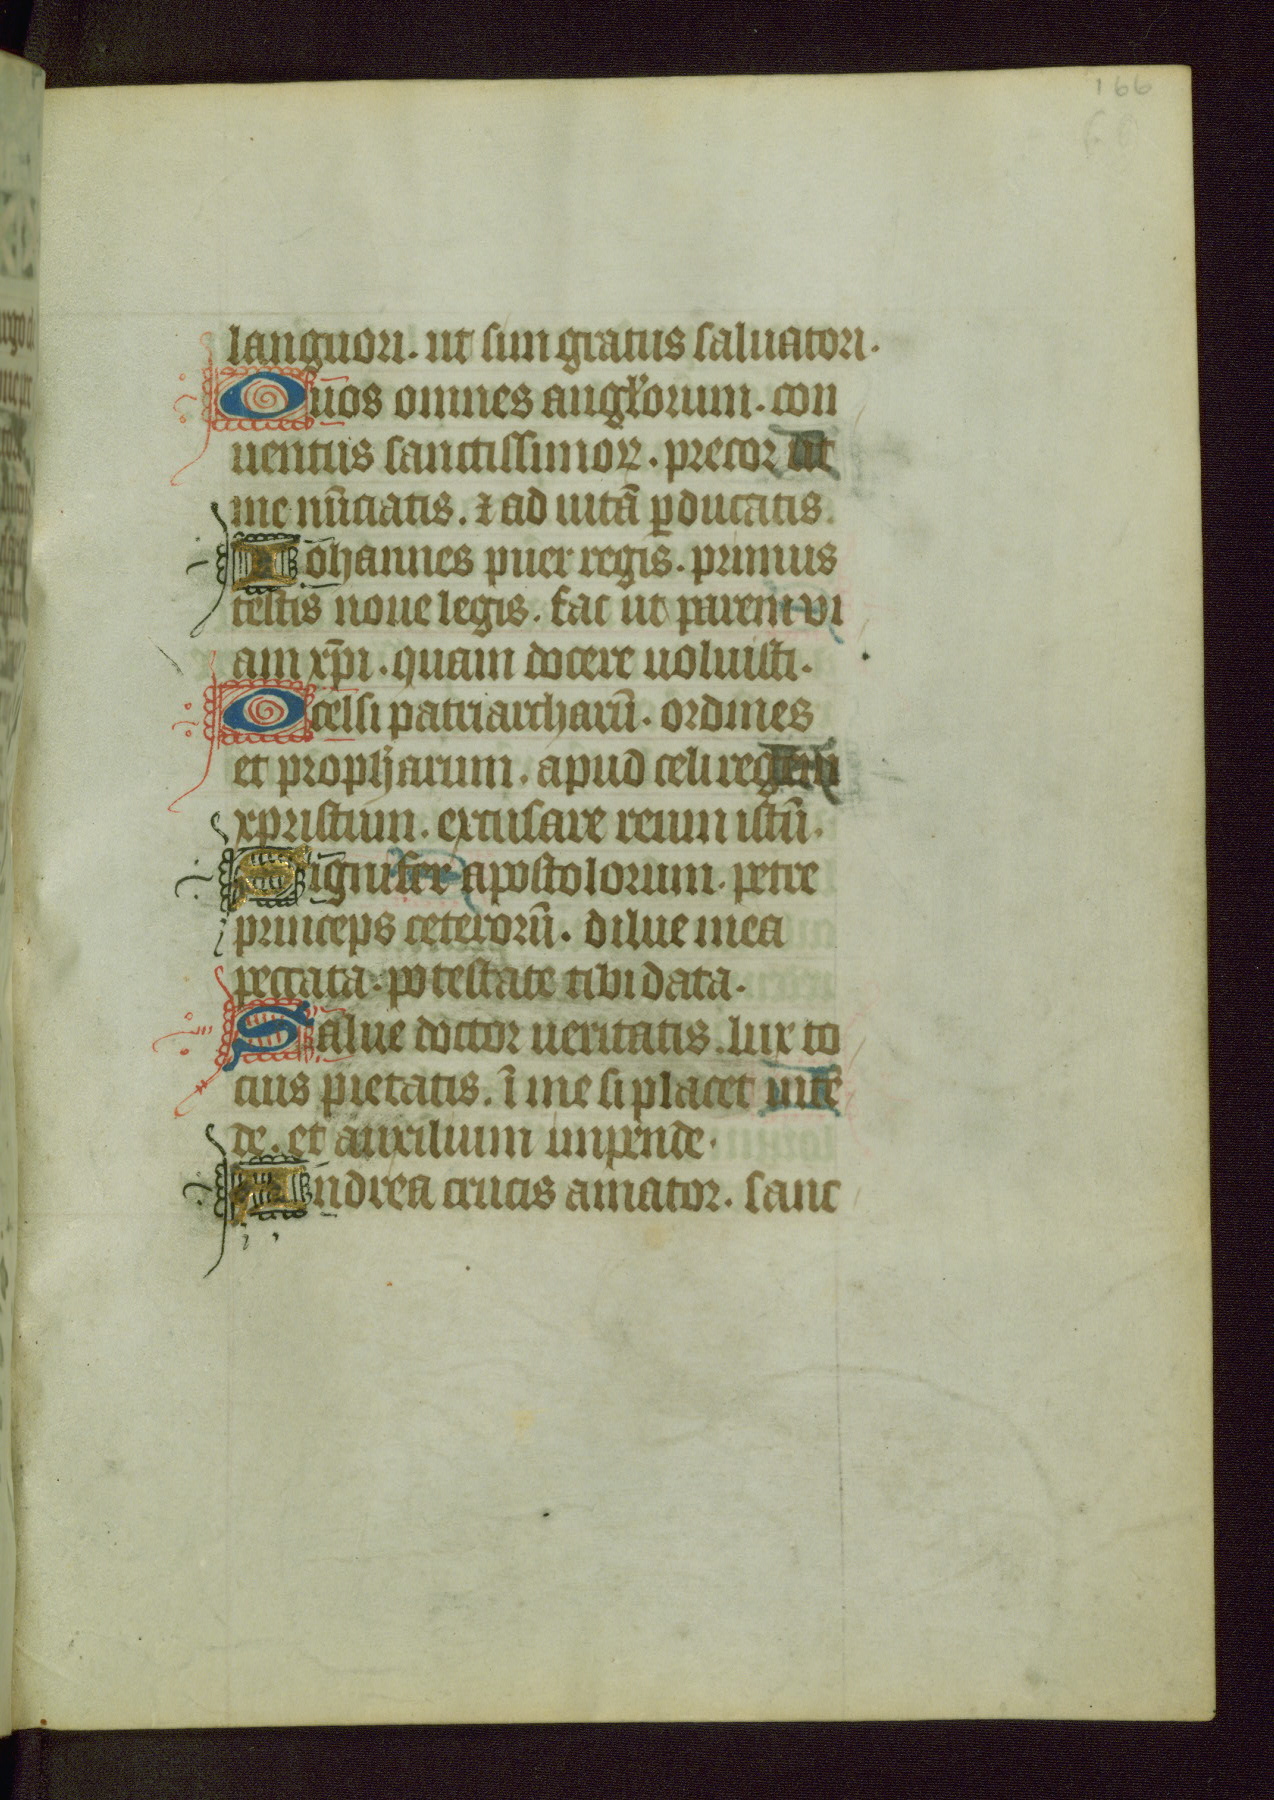 166
languori. ut sim gratus saluatori.
Ouos omnes angl'orum. con
uentus sanctissimoꝝ. precor ut
me nūciatis. ⁊ ad uitā ꝑducatis.
Iohannes puer regis. primus
testis noue legis. fac ut parem vi
am xp̄i. quam docere uoluisti.
Ocelsi patriarcharū. ordines
et proph̄arum. apud celi regem
xpristum. excusare reum istū.
Signifer apostolorum. petre
princeps ceterorū. dilue mea
peccata. potestate tibi data.
Salue doctor ueritatis. lux to
cius pietatis. ī me si placet
de. et auxilium impende.
Andrea crucis amator. sanc